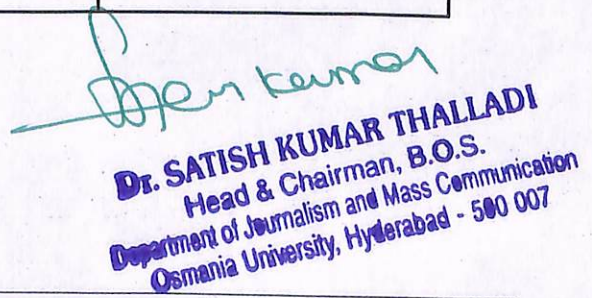 Dr. SATISH KUMAR THALLADI
Head & Chairman, B.O.S.
Department of Journalism and Mass Communication
Osmania University, Hyderabad - 500 007